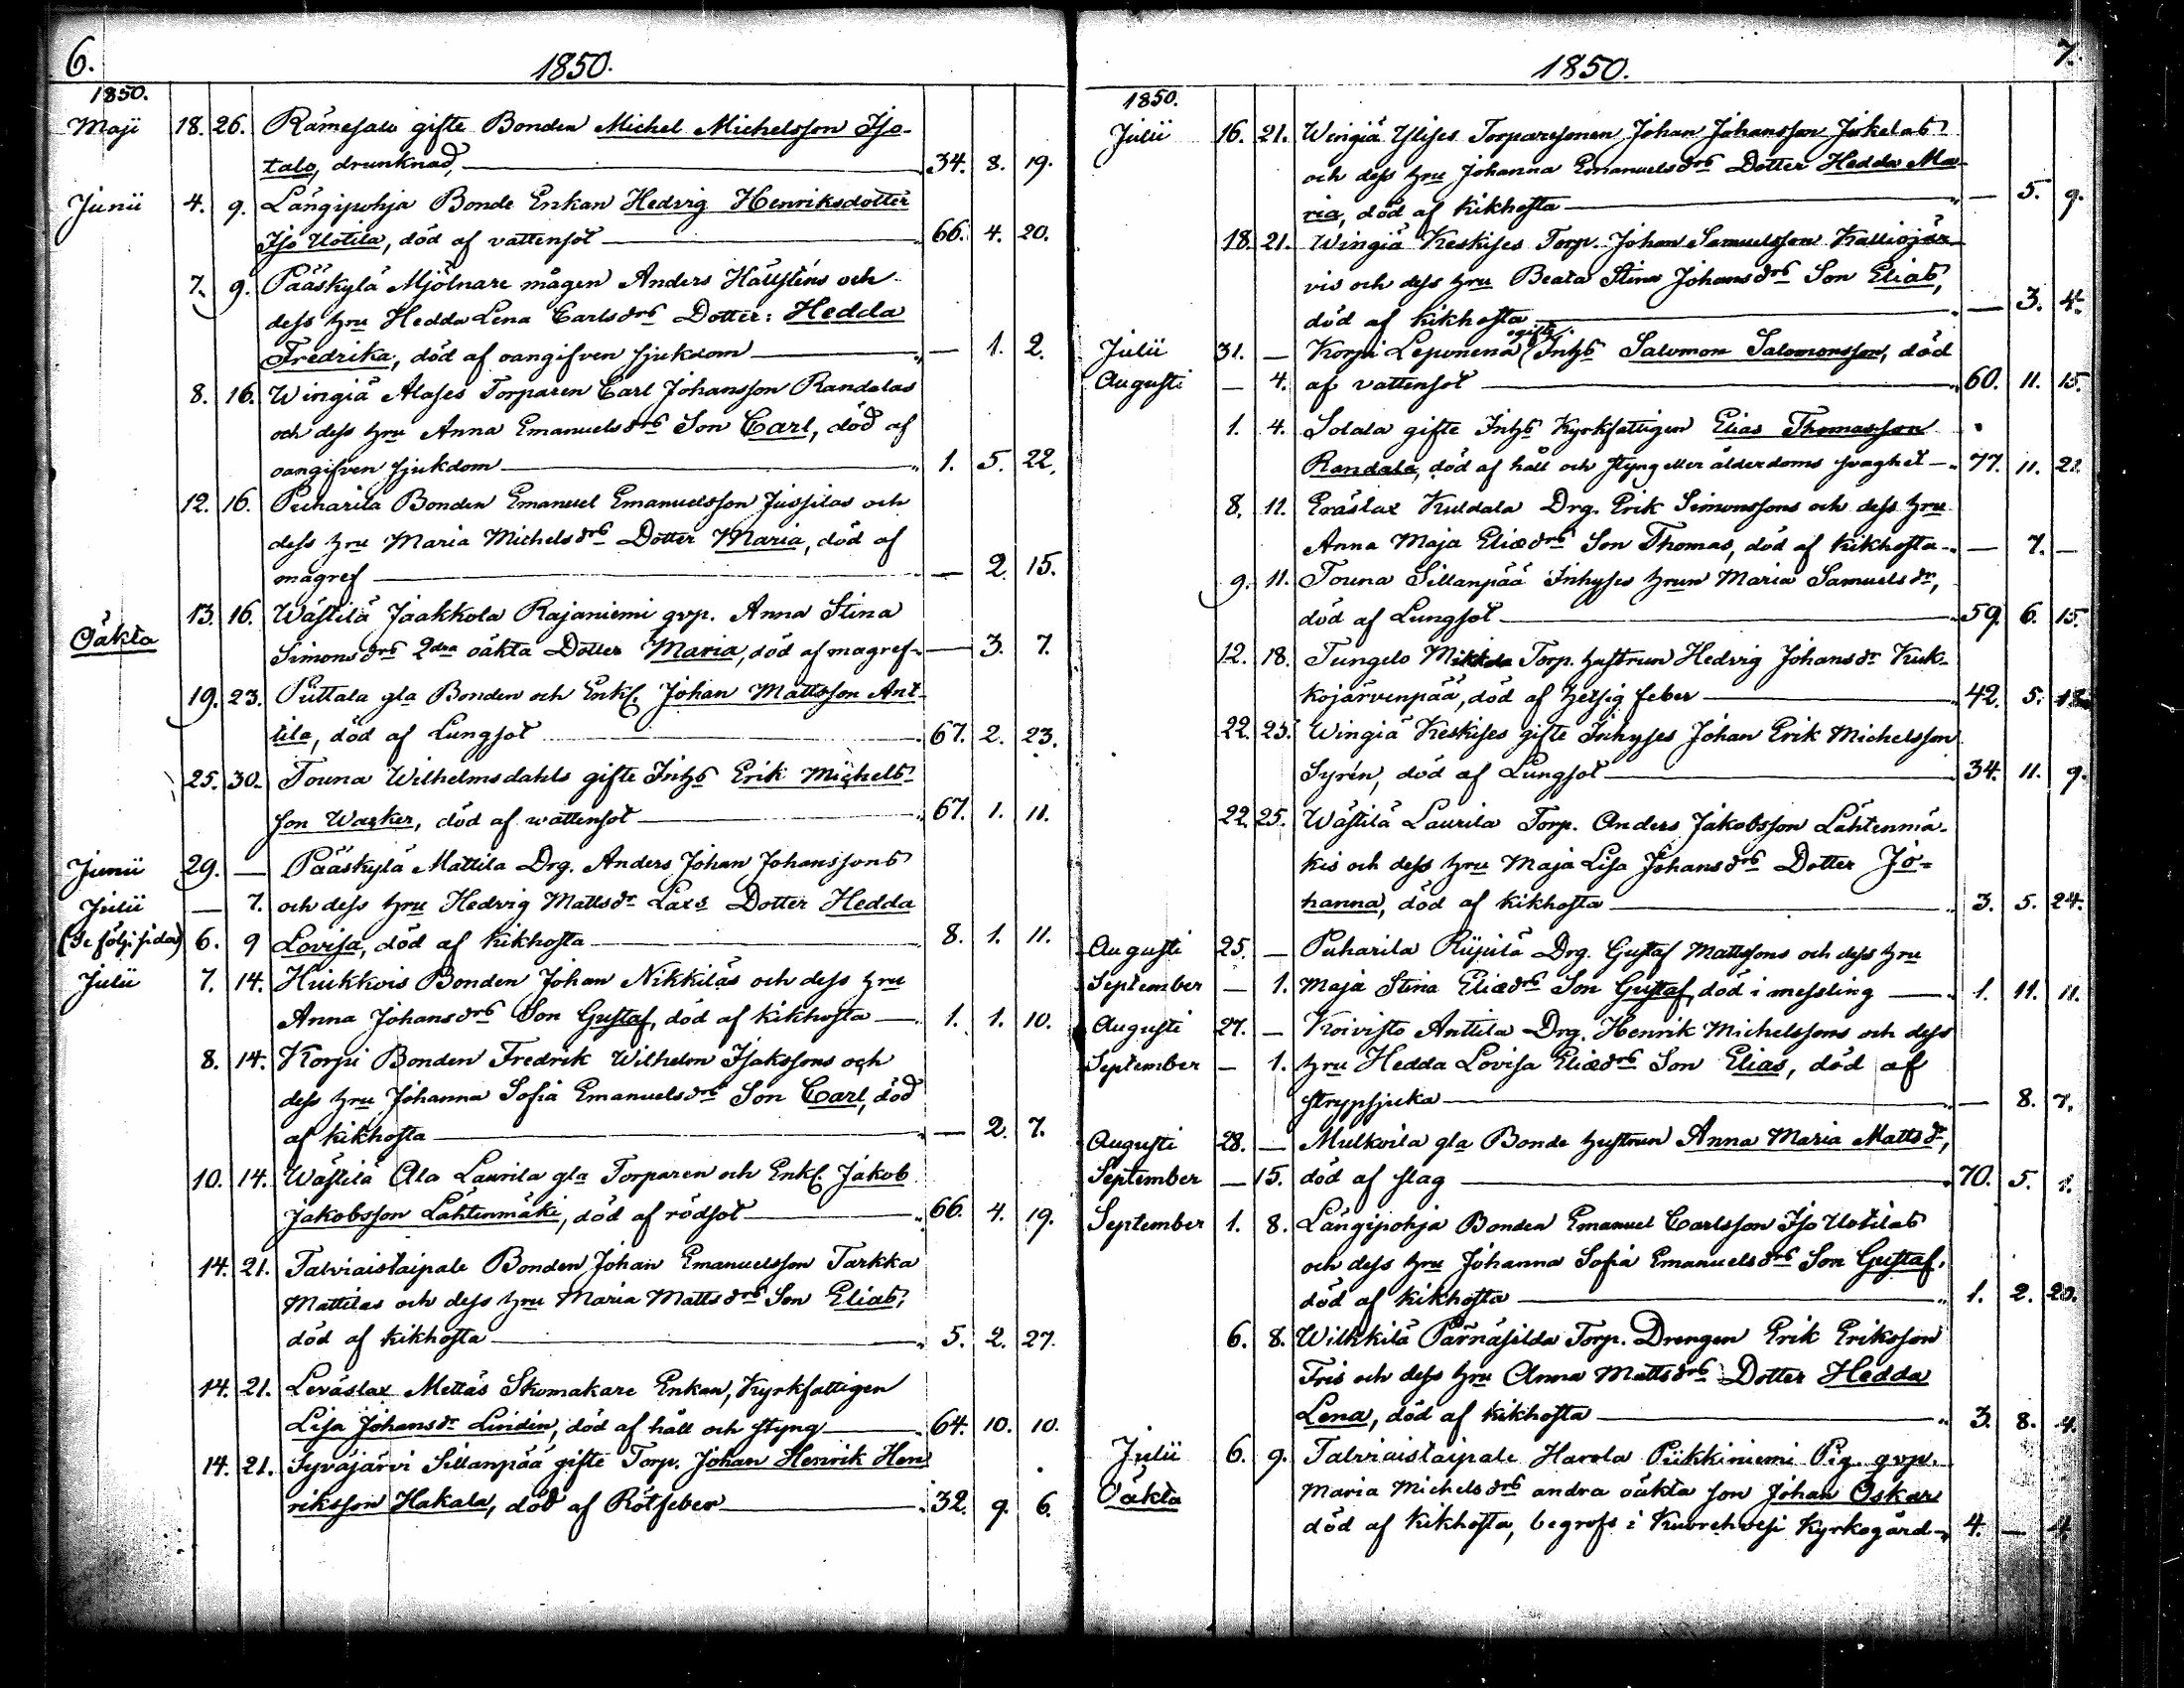 6.
1850.
1850.
Maji 18. 26. Rämesalo gifte Bonden Michel Michelsson Iso-
talo, drunknad, 34. 8. 19.
Junii 4. 9. Längipohja Bonde Enkan Hedvig Henriksdotter
Iso Uotila, död af vattensot 66. 4. 20.
7. 9. Pääskylä Mjölnare mågen Anders Hällsténs och
dess hru Hedda Lena Carlsdrs Dotter: Hedda
Fredrika, död af oangifven sjukdom — 1. 2.
8. 16. Wingiä Alases Torparen Carl Johansson Randalas
och dess hru Anna Emanuelsdrs Son Carl, död af
oangifven sjukdom 1. 5. 22.
12. 16. Puharila Bonden Emanuel Emanuelsson Jussilas och
dess hru Maria Michelsdrs Dotter Maria, död af
magref — 2. 15.
13. 16. Wästilä Jaakkola Rajaniemi qvp. Anna Stina
Oäkta Simonsdrs 2dra oäkta Dotter Maria, död af magref — 3. 7.
19. 23. Puttala gla Bonden och Enkl. Johan Mattsson Ant-
tila, död af Lungsot 67. 2. 23.
25. 30. Touna Wilhelmsdahls gifte Inhs Erik Michels-
son Wasker, död af wattensot 67. 1. 11.
Junii 29. — Pääskylä Mattila Drg. Anders Johan Johanssons
Julii — 7. och dess hru Hedvig Mattsdr Laxs Dotter Hedda
(Se följ. sidas) 6. 9 Lovisa, död af kikhosta 8. 1. 11.
Julii 7. 14. Huikkois Bonden Johan Nikkiläs och dess hru
Anna Johansdrs Son Gustaf, död af kikhosta 1. 1. 10.
8. 14. Korpi Bonden Fredrik Wilhelm Isakssons och
dess hru Johanna Sofia Emanuelsdrs Son Carl, död
af kikhosta — 2. 7.
10. 14. Wästilä Ala Laurila gla Torparen och Enkl. Jakob
Jakobsson Lähtenmäki, död af rödsot 66. 4. 19.
14. 21. Talviaistaipale Bonden Johan Emanuelsson Tarkka
Mattilas och dess hru Maria Mattsdrs Son Elias,
död af kikhosta 5. 2. 27.
14. 21. Leväslax Mettäs Skomakare Enkan, Kyrkfattigen
Lisa Johansdr Lindin, död af håll och styng 64. 10. 10.
14. 21. Syväjärvi Sillanpää gifte Torp. Johan Henrik Hen
riksson Hakala, död af Rötfeber 32. 9. 6.
7.
1850.
1850.
Julii 16. 21. Wingiä Ylises Torparesonen Johan Johansson Jokelas
och dess hru Johanna Emanuelsdrs Dotter Hedda Ma-
ria, död af kikhosta — 5. 9.
18. 21. Wingiä Keskises Torp. Johan Samuelsson Kalliojär-
vis och dess hru Beata Stina Johansdrs Son Elias,
död af kikhosta — 3. 4.
Julii 31. — Korpi Leponena (ogifte Inhs Salomon Salomonsson, död
Augusti — 4. af vattensot 60. 11. 15.
1. 4. Solala gifte Inhs Kyrkfattigen Elias Thomasson
Randala, död af håll och styng eller ålderdoms svaghet 77. 11. 21.
8. 11. Eräslax Kuldala Drg. Erik Simonssons och dess hru
Anna Maja Eliædrs Son Thomas, död af kikhosta — 7. —
9. 11. Touna Sillanpää Inhyses hrun Maria Samuelsdr,
död af Lungsot 59. 6. 15.
12. 18. Tungelo Mikkola Torp. hustrun Hedvig Johansdr Kuk-
kojärvenpää, död af hetsig feber 42. 5. 18
22. 25. Wingiä Keskises gifte Inhyses Johan Erik Michelsson
Syrén, död af Lungsot 34. 11. 9.
22. 25. Wästilä Laurila Torp. Anders Jakobsson Lähtenmä-
kis och dess hru Maja Lisa Johansdrs Dotter Jo-
hanna, död af kikhosta 3. 5. 24.
Augusti 25. — Puharila Riipilä Drg. Gustaf Mattssons och dess hru
September — 1. Maja Stina Eliædrs Son Gustaf, död i messling 1. 11. 11.
Augusti 27. — Koivisto Anttila Drg. Henrik Michelssons och dess
September — 1. hru Hedda Lovisa Eliædrs Son Elias, död af
strypsjuka — 8. 7.
Augusti 28. — Mulkoila gla Bonde hustrun Anna Maria Mattsdr,
September — 15. död af slag 70. 5. 1.
September 1. 8. Längipohja Bonden Emanuel Carlsson Iso Uotilas
och dess hru Johanna Sofia Emanuelsdrs Son Gustaf,
död af kikhosta 1. 2. 20.
6. 8. Wilkkilä Pärnäsilda Torp. Drengen Erik Eriksson
Fris och dess hru Anna Mattsdrs Dotter Hedda
Lena, död af kikhosta 3. 8. 4.
Julii 6. 9. Talviaistaipale Harola Piikkiniemi Pig. qvp.
Oäkta Maria Michelsdrs andra oäkta son Johan Oskar
död af kikhosta, begrofs i Kuorehvesi Kyrkogård 4. — 4.